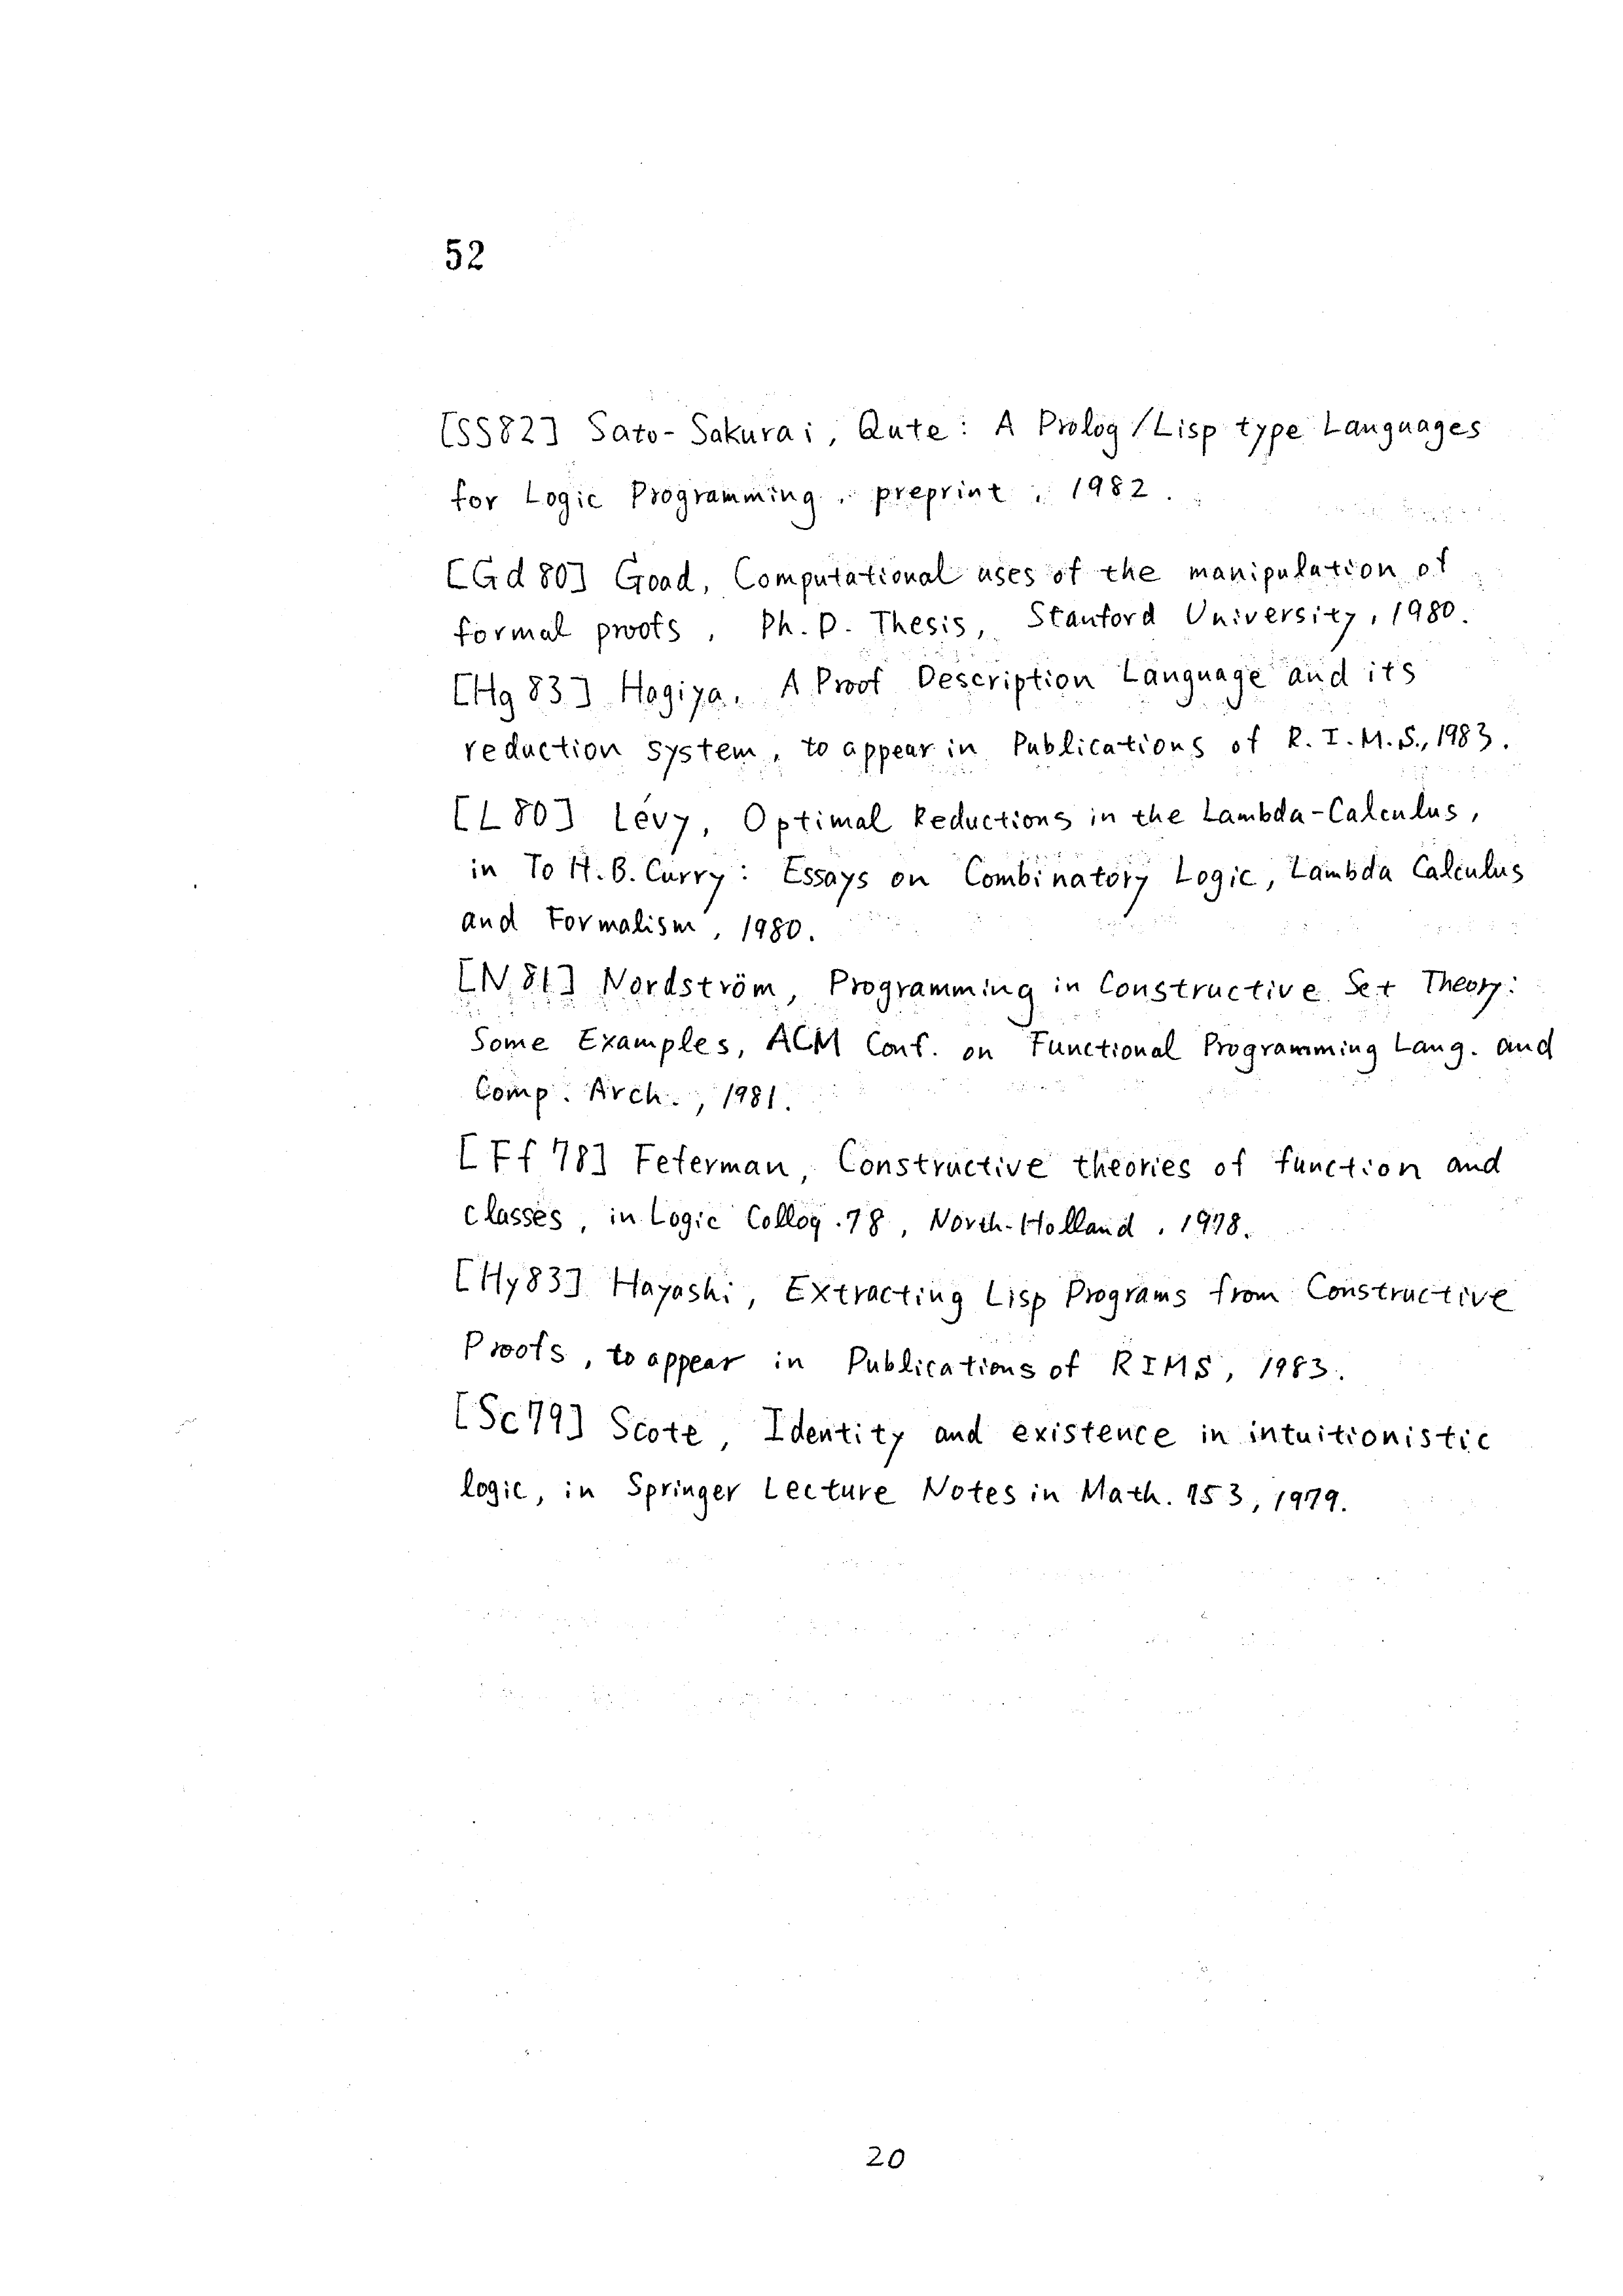 52
[SS82] Sato-Sakurai, Qute: A Prolog/Lisp type Languages
for Logic Programming, preprint, 1982.
[Gd80] Goad, Computational uses of the manipulation of
formal proofs, Ph. D. Thesis, Stanford University, 1980.
[Hg83] Hagiya, A Proof Description Language and its
reduction system, to appear in Publications of R.I.M.S., 1983.
[L80] Lévy, Optimal Reductions in the Lambda-Calculus,
in To H.B. Curry: Essays on Combinatory Logic, Lambda Calculus
and Formalism, 1980.
[N81] Nordström, Programming in Constructive Set Theory:
Some Examples, ACM Conf. on Functional Programming Lang. and
Comp. Arch., 1981.
[Ff78] Feferman, Constructive theories of function and
classes, in Logic Colloq. 78, North-Holland, 1978.
[Hy83] Hayashi, Extracting Lisp Programs from Constructive
Proofs, to appear in Publications of RIMS, 1983.
[Sc79] Scott, Identity and existence in intuitionistic
logic, in Springer Lecture Notes in Math. 753, 1979.
20